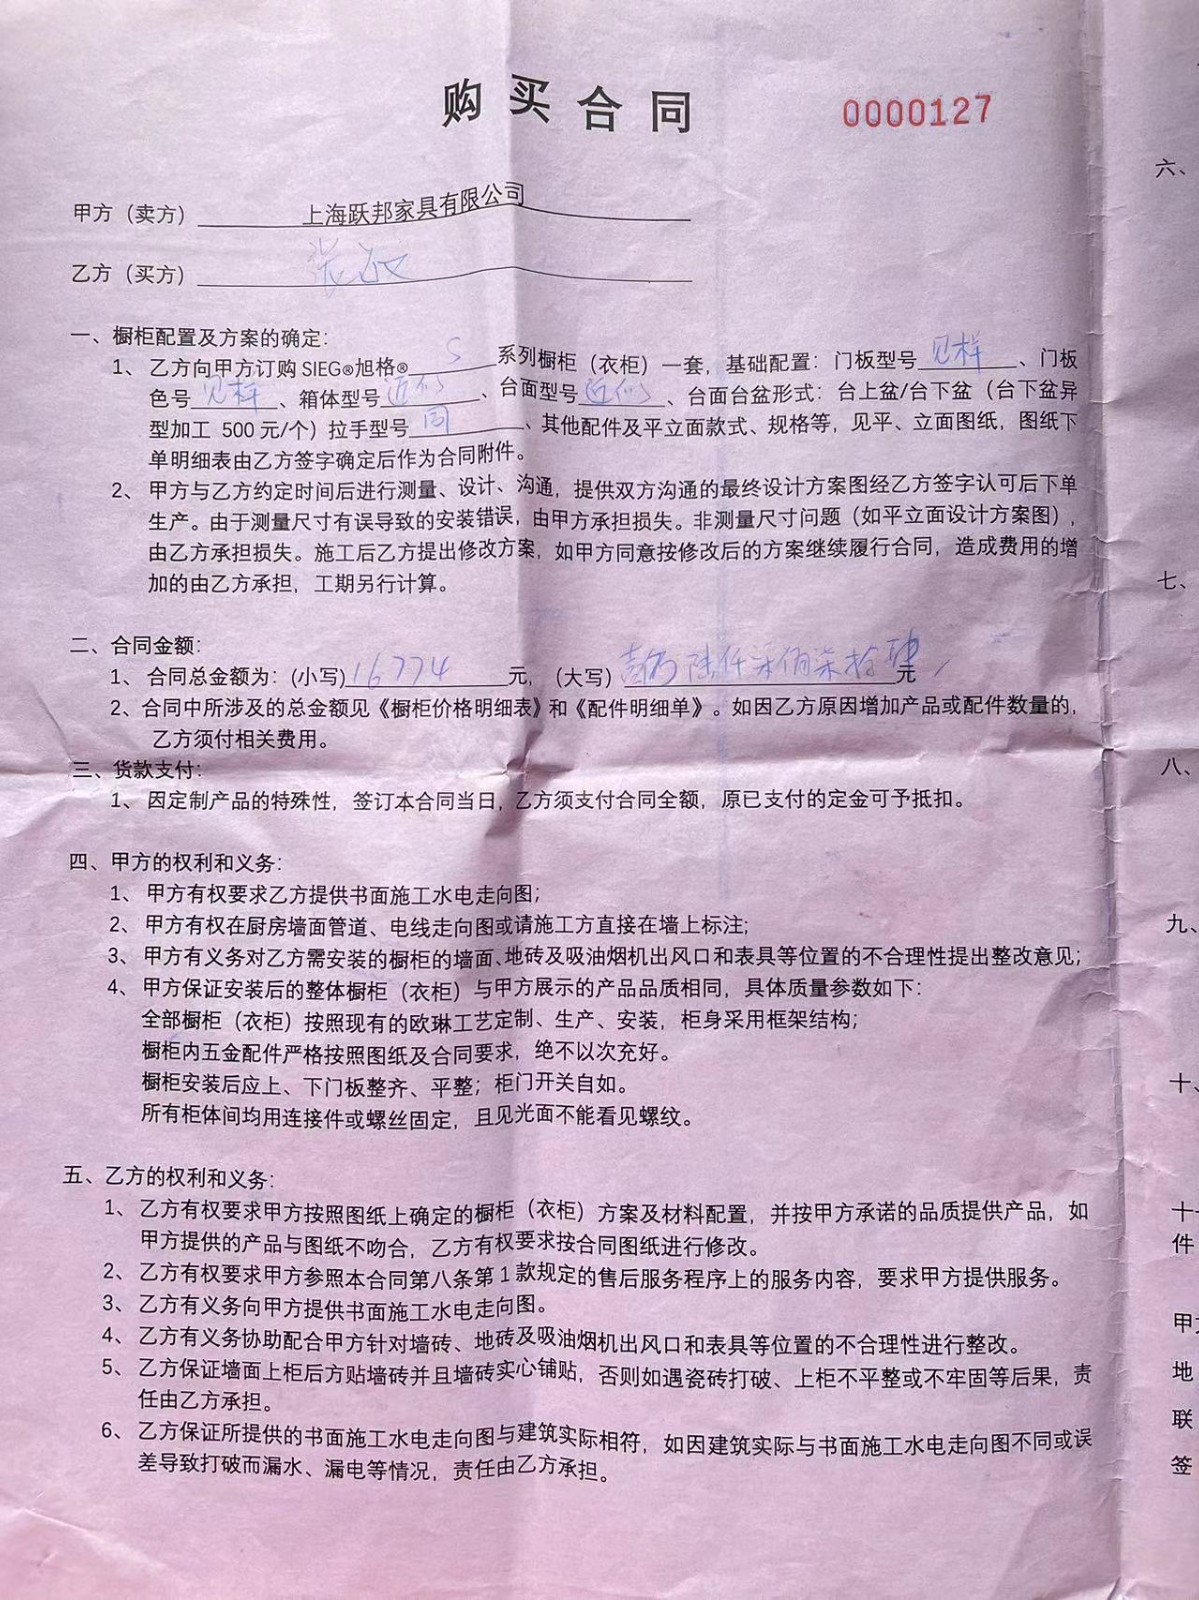 购买合同
0000127
甲方（卖方）上海跃邦家具有限公司
乙方（买方）张
一、橱柜配置及方案的确定：
1、乙方向甲方订购 SIEG®旭格® S 系列橱柜（衣柜）一套，基础配置：门板型号 见样 、门板
色号 见样 、箱体型号 近似 、台面型号 近似 、台面台盆形式：台上盆/台下盆（台下盆异
型加工 500 元/个）拉手型号 同 、其他配件及平立面款式、规格等，见平、立面图纸，图纸下
单明细表由乙方签字确定后作为合同附件。
2、甲方与乙方约定时间后进行测量、设计、沟通，提供双方沟通的最终设计方案图经乙方签字认可后下单
生产。由于测量尺寸有误导致的安装错误，由甲方承担损失。非测量尺寸问题（如平立面设计方案图），
由乙方承担损失。施工后乙方提出修改方案，如甲方同意按修改后的方案继续履行合同，造成费用的增
加的由乙方承担，工期另行计算。
二、合同金额：
1、合同总金额为：(小写) 16774 元，（大写）壹万陆仟柒佰柒拾肆元
2、合同中所涉及的总金额见《橱柜价格明细表》和《配件明细单》。如因乙方原因增加产品或配件数量的，
乙方须付相关费用。
三、货款支付：
1、因定制产品的特殊性，签订本合同当日，乙方须支付合同全额，原已支付的定金可予抵扣。
四、甲方的权利和义务：
1、甲方有权要求乙方提供书面施工水电走向图；
2、甲方有权在厨房墙面管道、电线走向图或请施工方直接在墙上标注；
3、甲方有义务对乙方需安装的橱柜的墙面、地砖及吸油烟机出风口和表具等位置的不合理性提出整改意见；
4、甲方保证安装后的整体橱柜（衣柜）与甲方展示的产品品质相同，具体质量参数如下：
全部橱柜（衣柜）按照现有的欧琳工艺定制、生产、安装，柜身采用框架结构；
橱柜内五金配件严格按照图纸及合同要求，绝不以次充好。
橱柜安装后应上、下门板整齐、平整；柜门开关自如。
所有柜体间均用连接件或螺丝固定，且见光面不能看见螺纹。
五、乙方的权利和义务：
1、乙方有权要求甲方按照图纸上确定的橱柜（衣柜）方案及材料配置，并按甲方承诺的品质提供产品，如
甲方提供的产品与图纸不吻合，乙方有权要求按合同图纸进行修改。
2、乙方有权要求甲方参照本合同第八条第1款规定的售后服务程序上的服务内容，要求甲方提供服务。
3、乙方有义务向甲方提供书面施工水电走向图。
4、乙方有义务协助配合甲方针对墙砖、地砖及吸油烟机出风口和表具等位置的不合理性进行整改。
5、乙方保证墙面上柜后方贴墙砖并且墙砖实心铺贴，否则如遇瓷砖打破、上柜不平整或不牢固等后果，责
任由乙方承担。
6、乙方保证所提供的书面施工水电走向图与建筑实际相符，如因建筑实际与书面施工水电走向图不同或误
差导致打破而漏水、漏电等情况，责任由乙方承担。
六、
七、
八、
九、
十、
十
件
甲
地
联
签